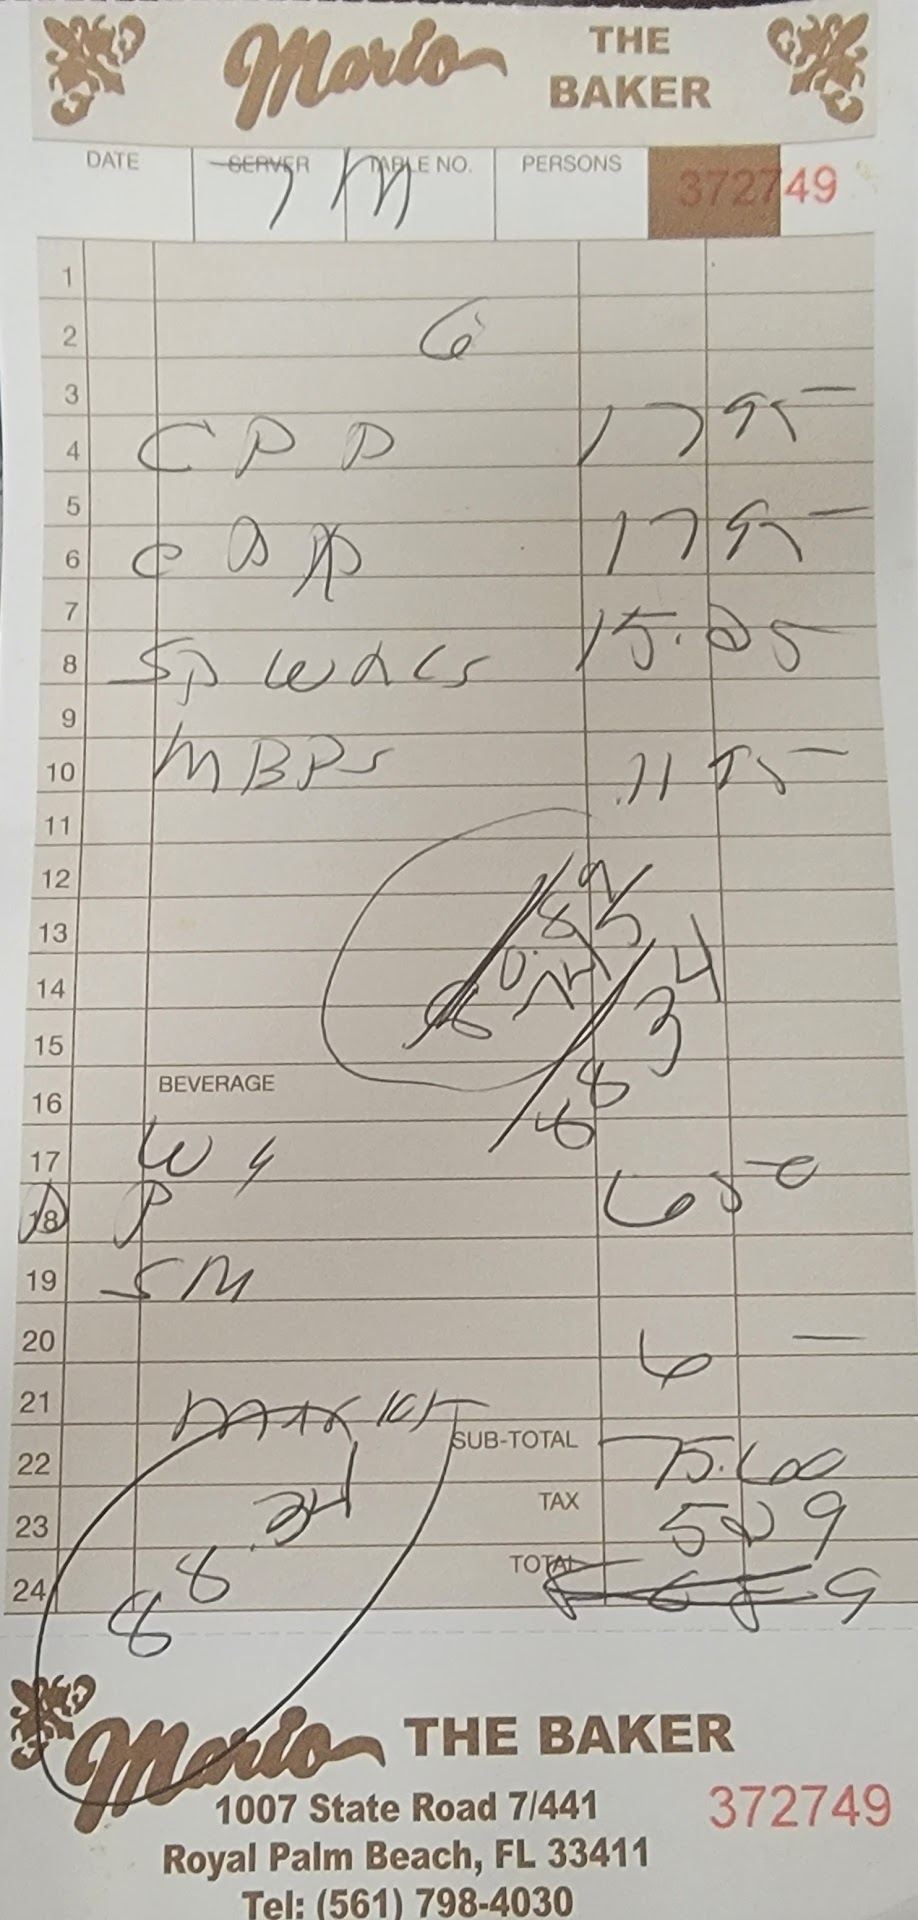 Mario THE BAKER
DATE SERVER TABLE NO. PERSONS 372749
1
2 6
3
4 C P P 17 95
5
6 C P P 17 95
7
8 SP W CS 15.25
9
10 MBPS 11 95
11
12
13
14
15
88 34
BEVERAGE
16
17 W 4
18 P 6 50
19 SM
20 6 —
21
SUB-TOTAL 75.60
22
TAX 5 29
23
88.34
TOTAL
24
Mario THE BAKER
1007 State Road 7/441 372749
Royal Palm Beach, FL 33411
Tel: (561) 798-4030